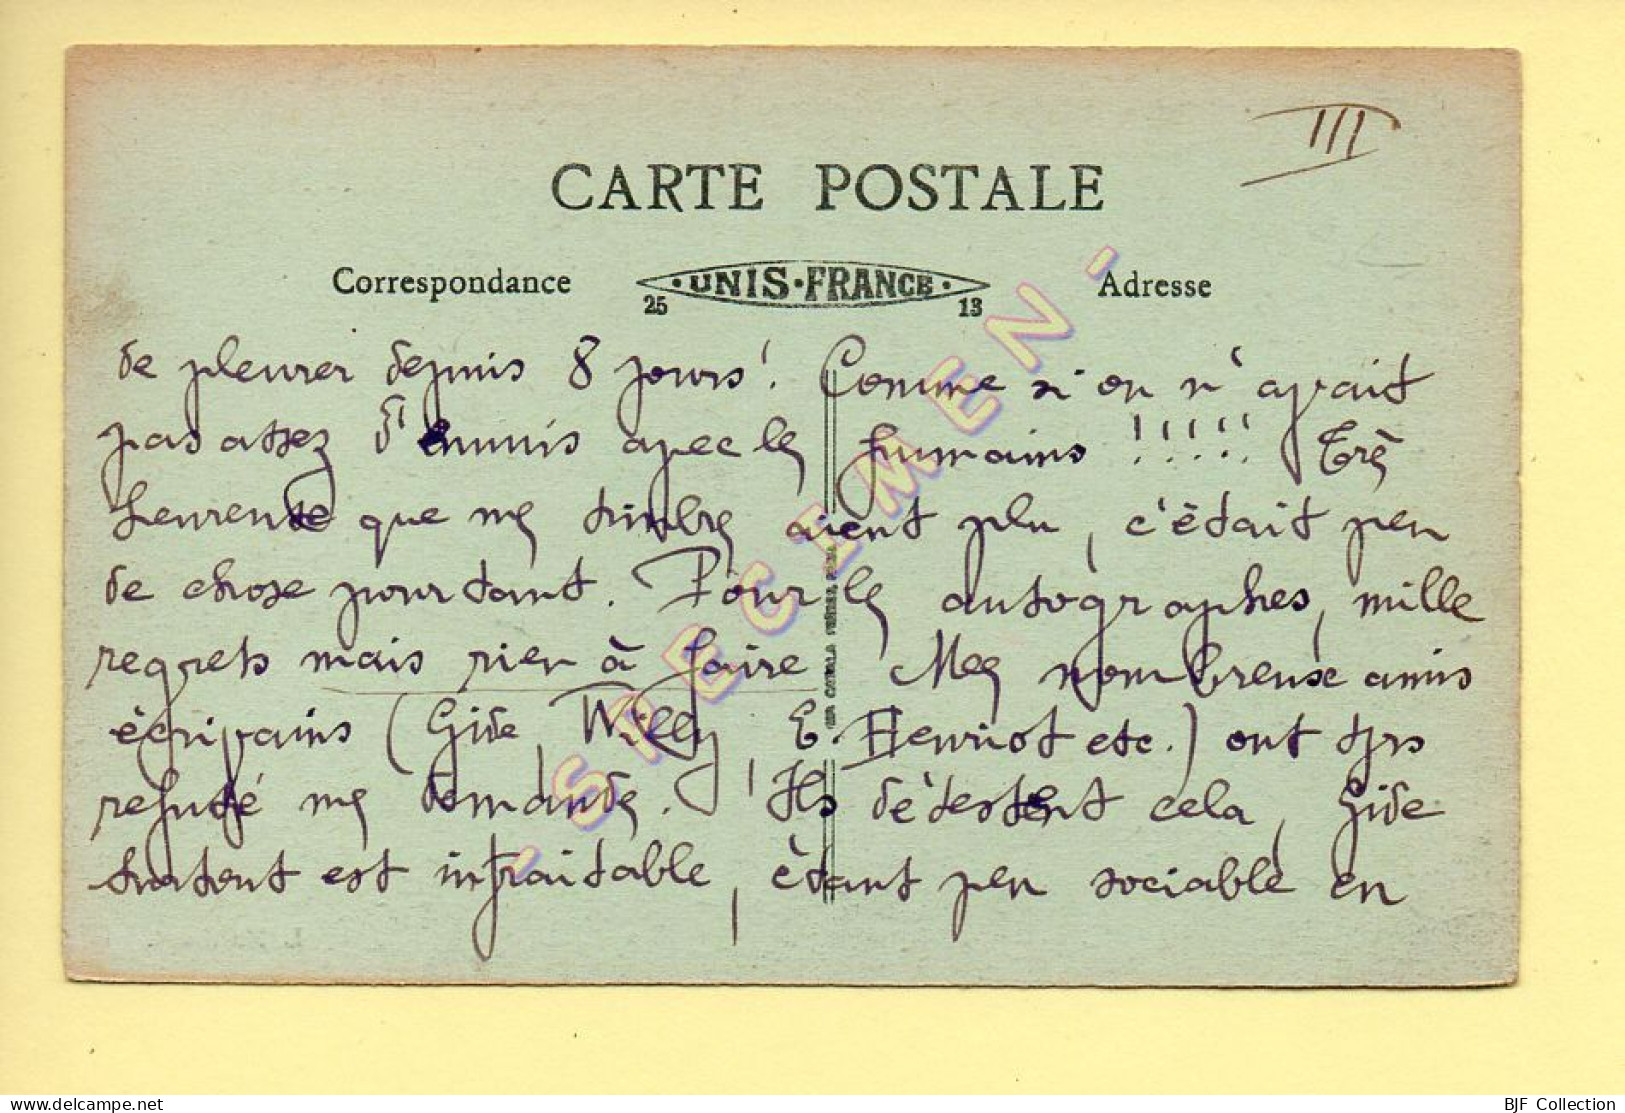 III
CARTE POSTALE
Correspondance
· UNIS · FRANCE ·
25 13
Adresse
de pleurer depuis 8 jours ! Comme si on n'avait
pas assez d'ennuis avec les humains !!!!! Très
heureuse que mes timbres aient plu, c'était peu
de chose pourtant. Pour les autographes, mille
regrets mais rien à faire Mes nombreuse amis
écrivains (Gide, Willy, E. Henriot etc.) ont tjrs
refusé mes demandes. Ils détestent cela, Gide
surtout est intraitable, étant peu sociable en
SPECIMEN
BJF Collection